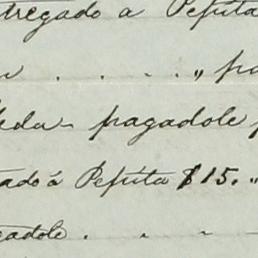 tregado a Pepita
. . . . „ pa
da pagadole p
tado á Pepita $15. „
gadole . . . .